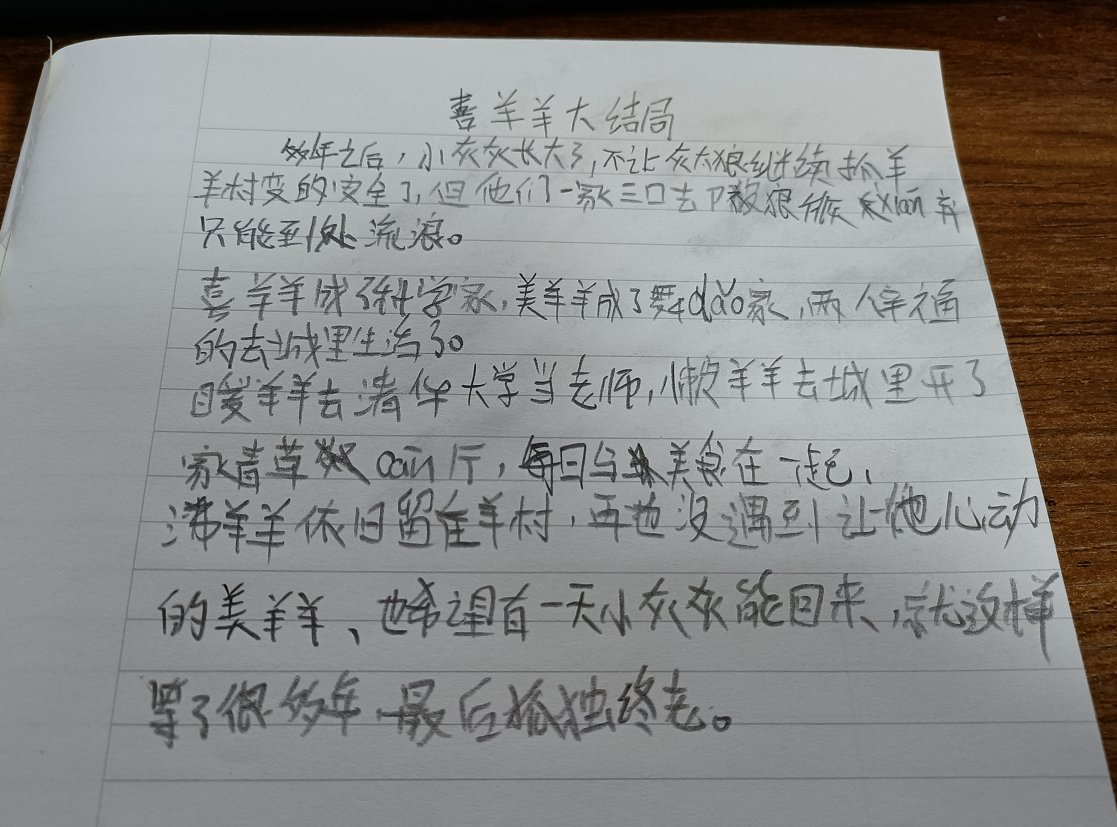 喜羊羊大结局
多年之后，小灰灰长大了，不让灰太狼继续抓羊
羊村变的安全了，但他们一家三口去被狼族xian弃
只能到处流浪。
喜羊羊成了科学家，美羊羊成了舞dǎo家，两人幸福
的去城里生活了。
暖羊羊去清华大学当老师，懒羊羊去城里开了
家青草cān厅，每日与美食在一起，
沸羊羊依旧留在羊村，再也没遇到让他心动
的美羊羊、也希望有一天小灰灰能回来，就这样
等了很多年，最后孤独终老。